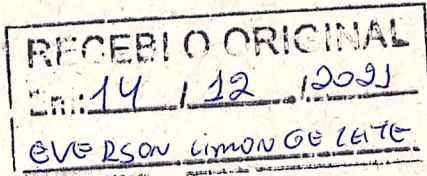 RECEBI O ORIGINAL
Em.: 14 / 12 / 2021
EVERSON LIMONGE LEITE